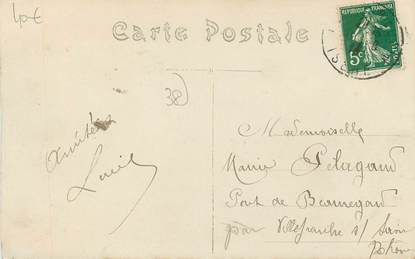 40€
Carte Postale
REPUBLIQUE FRANÇAISE
5c
POSTES
38
Amitiés
Lucie
Mademoiselle
Marie Pelagaud
Pont de Beauregard
par Villefranche s/ Saône
Rhône